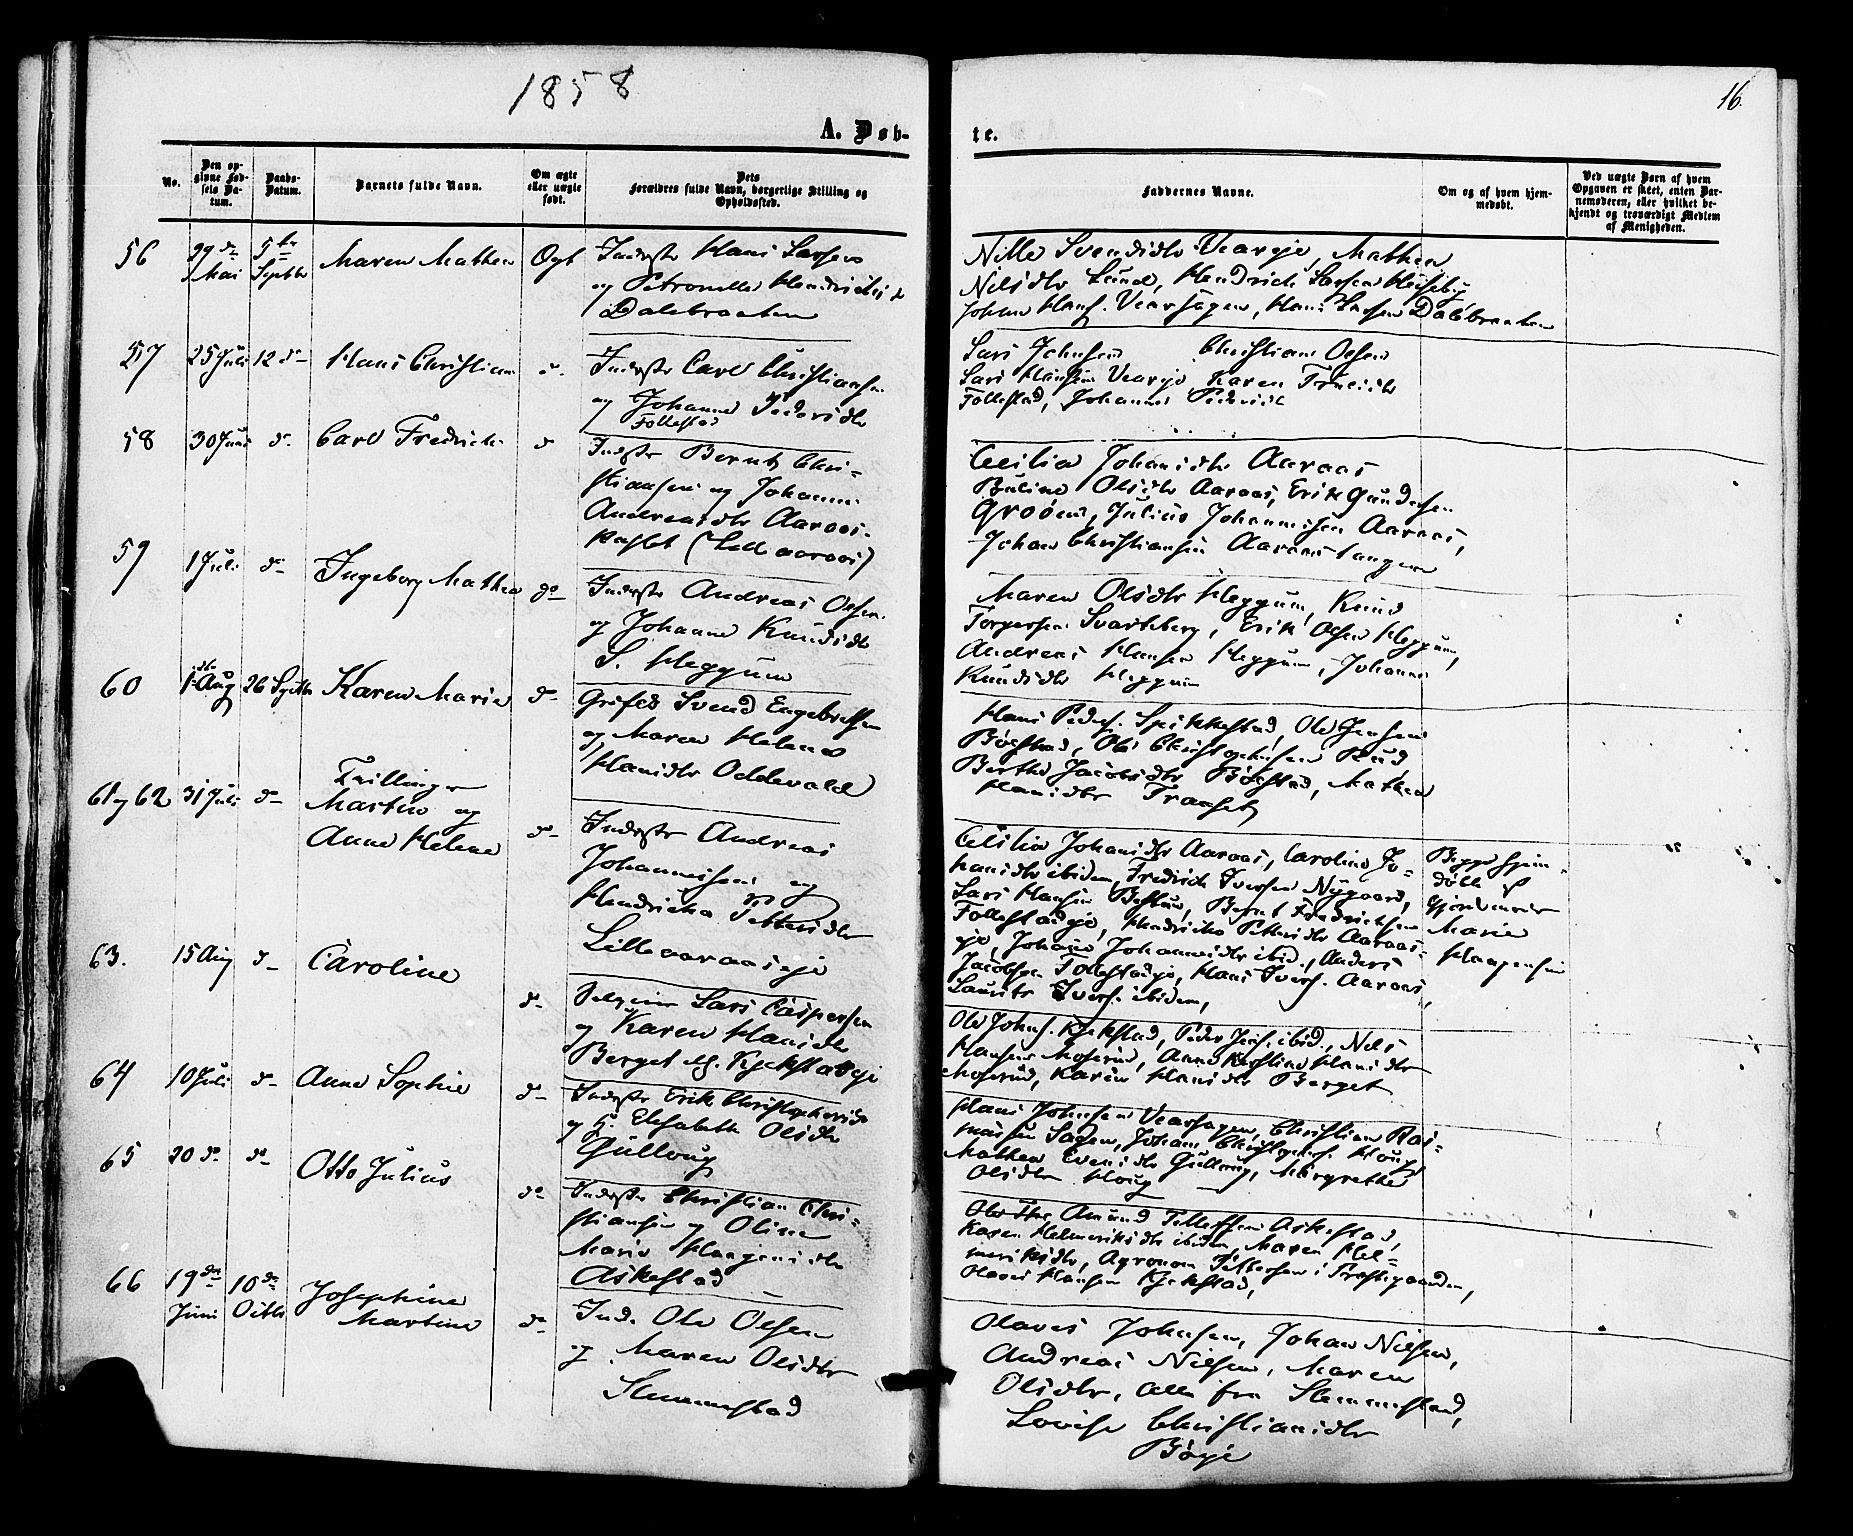 1858
16.
A. Døb-
te.
No.
Den op-
givne Fød-
sels Da-
tum.
Daabs-
Datum.
Barnets fulde Navn.
Om ægte
eller uægte
født.
Dets
Forældres fulde Navn, borgerlige Stilling og
Opholdssted.
Faddernes Navne.
Om og af hvem hjem-
medøbt.
Ved uægte Børn af hvem
Opgaven er skeet, enten Bar-
nemoderen, eller hvilket be-
kjendt og troværdigt Medlem
af Menigheden.
56
29 de
Mai
5te
Septbr
Maren Mathea
Ogt
Inderste Hans Larsen
og Petronelle Hendrichsdr
Dalsbraaten
Nille Svendsdtr Veareje, Mathea
Nilsdtr Lund, Hendrich Larsen Huseby
Johan Hans. Vearhagen, Hans Larsen Dalsbraaten
57
25 Juli
12 d-
Hans Christian
d-
Inderste Carl Christiansen
og Johanne Pedersdtr
Follestad
Lars Johnsen Christian Olsen
Lars Hansen Veareje, Karen
Follestad, Johanne Pedersdtr
58
30 Juni
d-
Carl Fredrich
d-
Inderste Bernt Chri-
stiansen og Johanne
Andreasdtr Aaraas-
(Lilleaaraas)
Cecilia Johansdtr Aaraas
Buline Olsdtr Aaraas, Erik Gundersen
Julius Johannesen Aaraas,
Johan Christiansen Aaraastangen
59
1 Juli
d-
Ingeborg Mathea
do
Inderste Andreas Olsen
og Johanne Knudsdtr
S. Heggum
Maren Olsdtr Heggum, Knud
Torgersen Svarteberg, Erik Olsen Heggum,
Andreas Hansen Heggum, Johanne
Knudsdtr Heggum
60
1ste Aug
26 Septbr
Karen Marie
d-
Svend Engebretsen
og Maren Helene
Hansdtr Oddevald
Hans Peders. Spikkestad, Ole Jensen
Bøhstad, Ole Christophersen Rud
Berthe Jacobsdtr Bøhstad, Mathea
Hansdtr Transet
61 og 62
31 Juli
d-
Tvillinger
Martin og
Anne Helene
d-
Inderste Andreas
Johannesen og
Hendrikke Pettersdtr
Lilleaaraaseje
Cecilia Johansdtr Aaraas, Caroline Jo-
hansdtr ibidem, Fredrich Iversen Nygaard,
Lars Hansen Bestum, Bernt Fredrichsen
Follestadeje, Hendrikke Pettersdtr Aaraas-
eje, Johanne Johannesdtr ibid., Anders
Jacobsen Follestadeje, Hans Ivers. Aaraas,
Laurits Ivers. ibidem,
Begge hjem-
døbt af
Gjordemoder
Marie
Haagensen
63.
15 Aug
d-
Caroline
d-
Selveier Lars Caspersen
og Karen Hansdtr
Berget Kjekstadeje
Ole Johns. Kjekstad, Peder Jens. ibid., Nils
Hansen Moserud, Anne Kirstine Hansdtr
Moserud, Karen Hansdtr Berget
64
10 Juli
d-
Anne Sophie
d-
Inderste Erik Christophersen
og H. Elisabeth Olsdtr
Gullaug
Hans Johnsen Vearhagen, Christian Ras-
mussen Sagen, Johan Christophers. Houg,
Mathea Evensdtr Gullaug, Margrethe
Olsdtr Houg
65
20 do
do
Otto Julius
do
Inderste Christian Chri-
stiansen og Oline
Marie Haagensdtr
Askestad
Ole Amund Tellefsen Askestad,
Karen Helmeriksdtr ibidem, Maren Hel-
meriksdtr, Agronom Pettersen i Præstegaarden,
Olaves Hansen Kjekstad,
66
19de
Juni
10de
Octbr
Josephine
Martine
do
Ind. Ole Olsen
og Maren Olsdtr
Slemmestad
Olaves Johnsen, Johan Nilsen,
Andreas Nilsen, Maren
Olsdtr, alle fra Slemmestad,
Lovise Christiansdtr
Bøeje